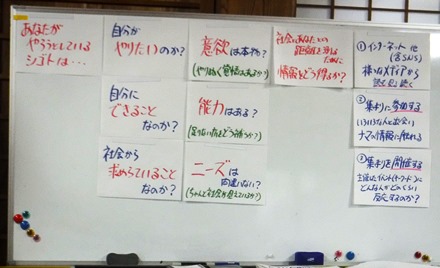 あなたが
やろうとしている
シゴトは…
自分が
やりたいのか?
意欲は本物か?
(やりぬく覚悟はあるか?)
社会とあなたとの
距離を測る
ために
情報をどう得るか?
①インターネット他
(含SNS)
様々なメディアから
読む・聴く
自分に
できること
なのか?
能力はある?
(足りない所をどう補うか?)
②集まりに参加する
いろいろな人と出会い
ナマの情報に触れる
社会から
求められていること
なのか?
ニーズは
間違いない?
(ちゃんと社会が見えているか?)
③集まりを開催する
主催したイベント(キーワード)に
どんな人がどのくらい
反応するのか?